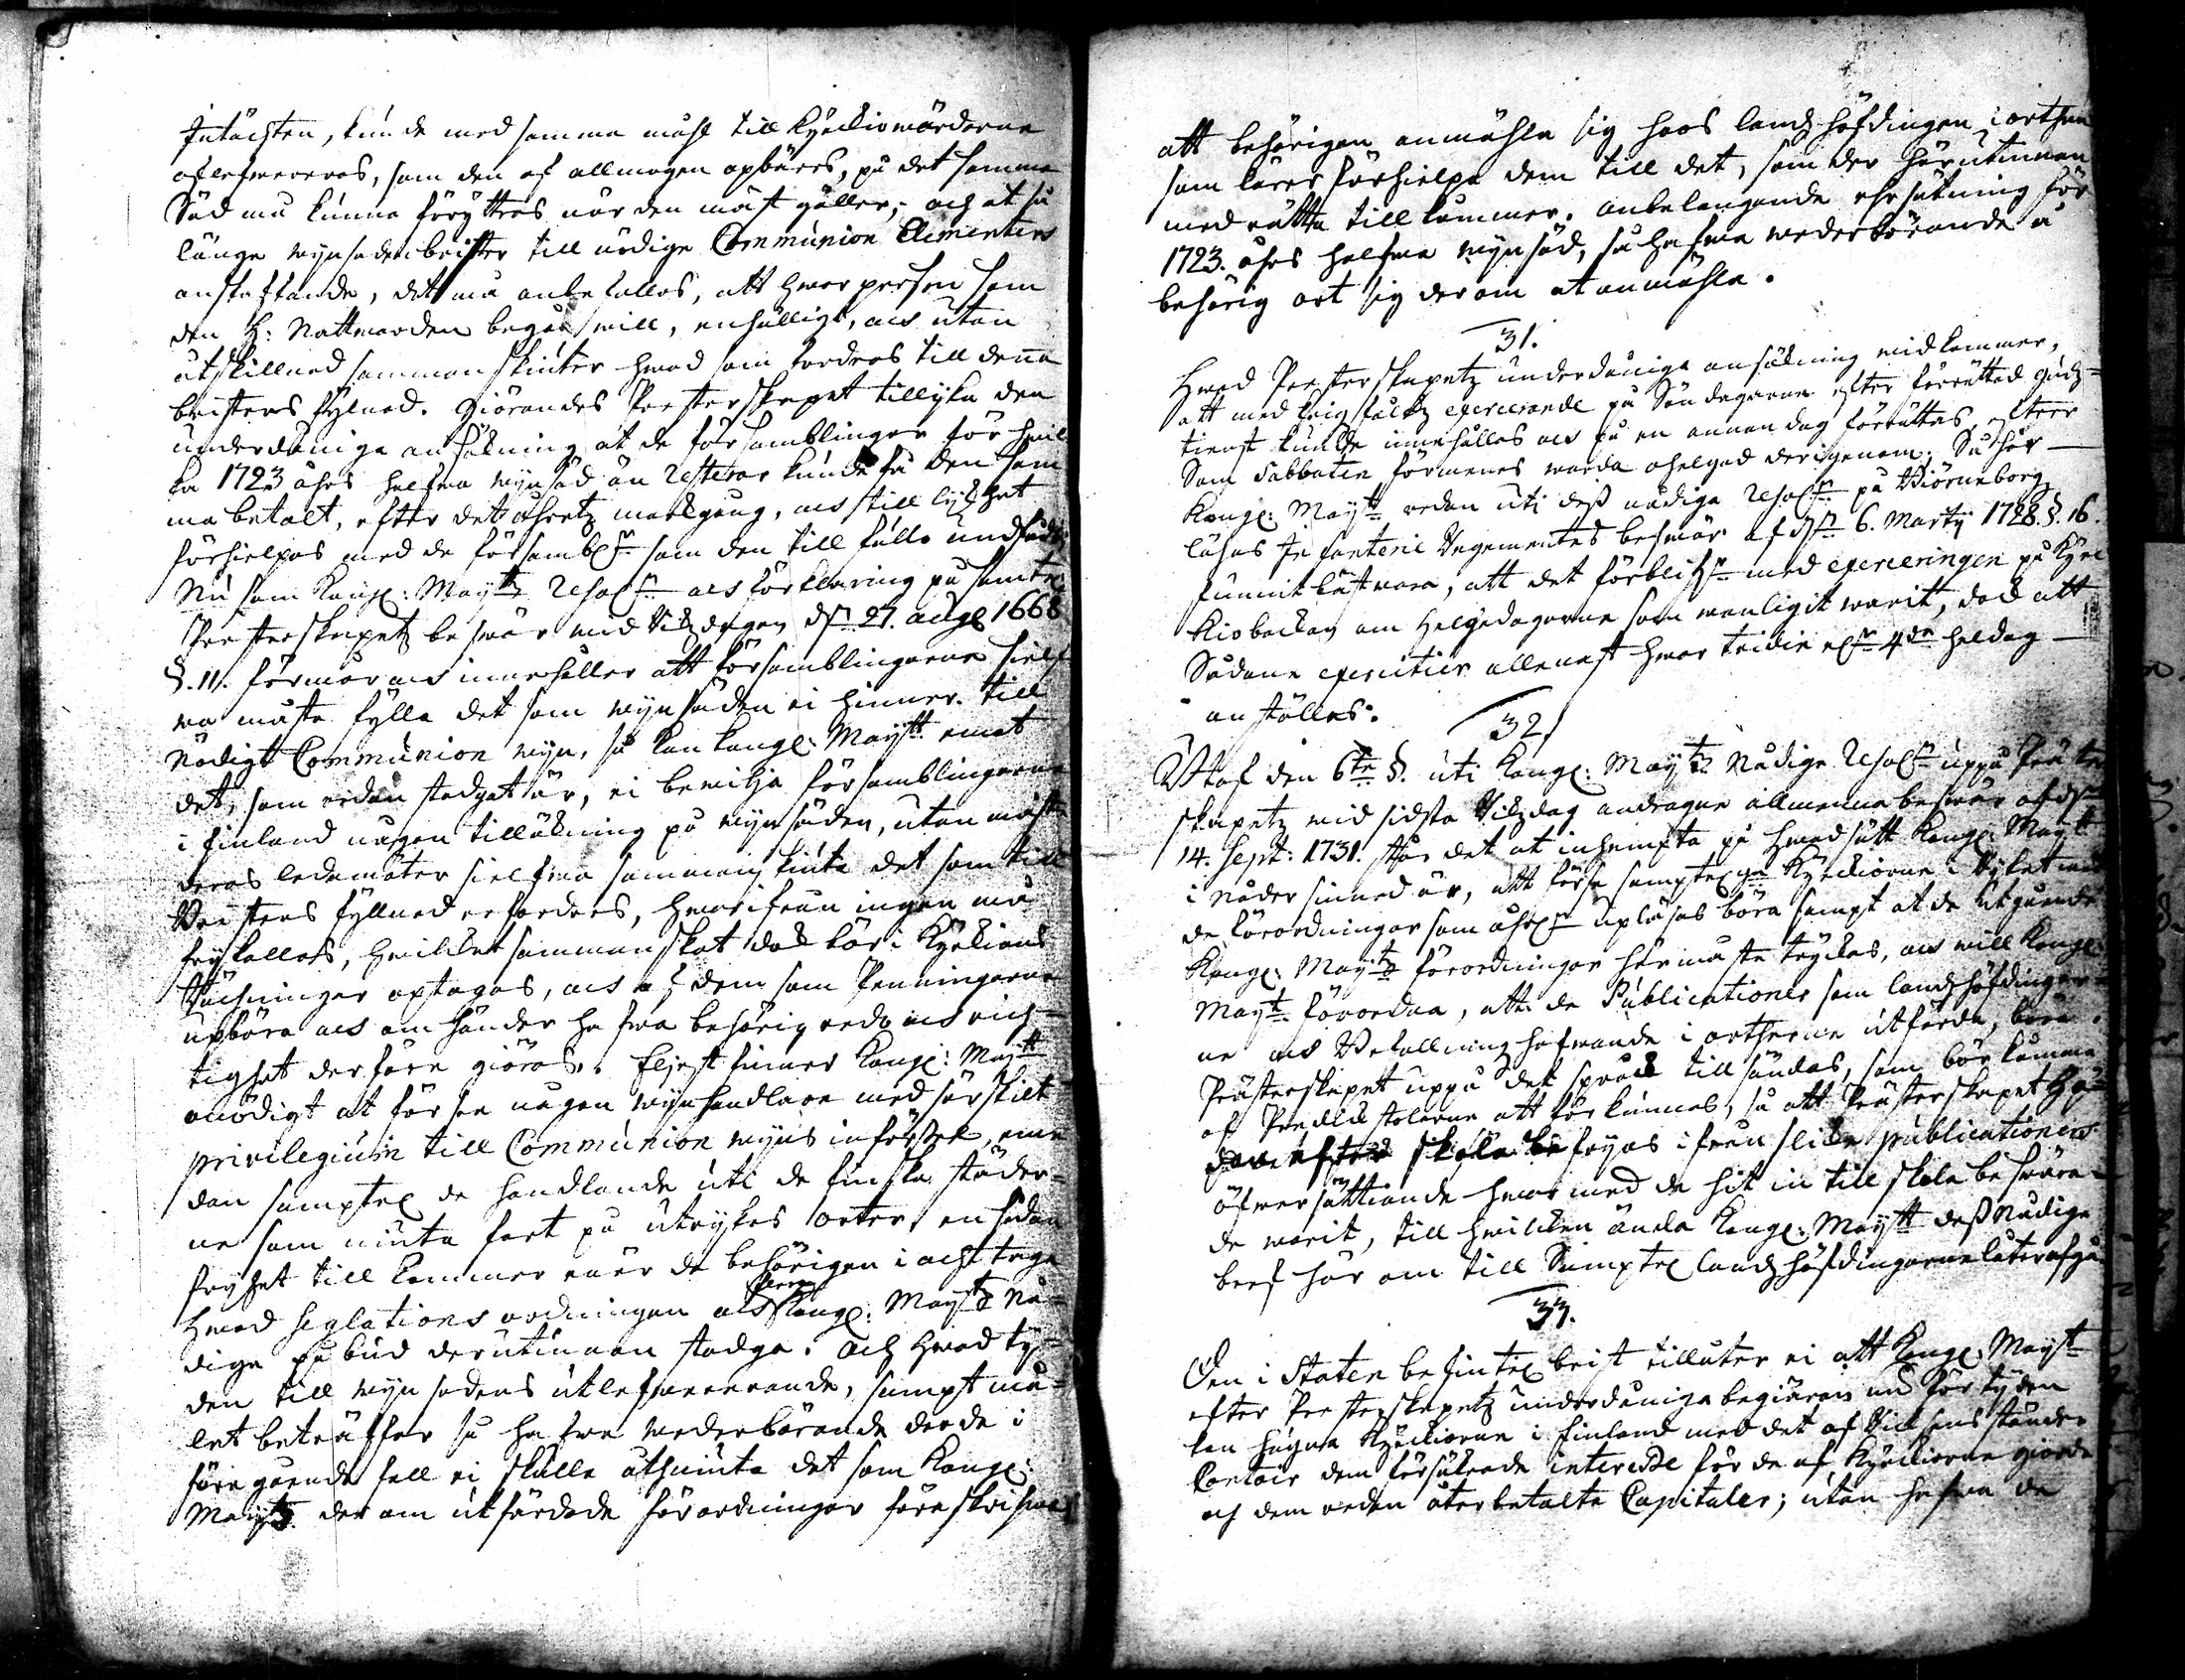 Intächten, kunde med samma måhl till Kyrkiowärdarne
aflefwereras, som den af allmogen opbäres, på det samma
Säd må kunna föryttras när den mäst gäller; och at så
länge wijnsaden brister till nödige Communion Elementers
anskaffande, det må anbefallas, att hwar person som
den H: Nattwarden begå will, enhälligt, och utan
utskillnad sammanskiuter hwad som fordras till denna
bristens fylnad. Giörandes Presterskapet tillijka den
underdåniga ansökning at de församblingar för hwil-
ka 1723 åhrs halfwa wijnsäd än resterar kunde få den sam
ma betalt, efter det åhretz markgång, och till lijkhet
förhielpas med de församblr som den till fullo undfådt,
Nu som Kongl: Maytz Resoln och förklaring på samtel:
Presterskapetz beswär wid Rikzdagen dn 27. augl 1668
§. 11. förmår och innehåller att församblingarne sielf
wa måste fylla det som wijnsäden ei hinner till
Nödigt Communion wijn, så kan Kongl: Maytt emot
det, som redan stadgat är, ei bewilja församblingarne
i finland någon tillökning på wijnsäden, utan måste
deras ledamöter sielfwa sammanskiuta det som till
Bristens fyllnad erfordras, hwarifrån ingen må
frijkallas, hwilket sammanskot dock bör i Kyrkians
Räkningar optagas, och af dem som Penningarne
upbära och om händer hafwa behörig reda och rich-
tighet derföre giöras. Eljest finner Kongl: Maytt
onödigt at förse någon wijnhandlare med särskilt
privilegium till Communion wijns införsel, eme
dan samptel de handlande uti de finska städer-
ne som niuta fart på utrykes orter, en sådan
frijhet till kommer när de behörigen i acht taga
hwad seglations ordningen och flere Kongl: Maytz Nå-
dige påbud derutinnan stadga. Och hwad ty-
den till wijnsädens utlefwererande, sampt må-
let beträffar så hafwa wederbörande der de i
föregående fall ei skulle åthniuta det som Kongl:
Maytz. der om utfärdade förordningar föreskrifwa
att behörigen anmähla sig hoos landzhöfdingen i orthen
som lärer förhielpa dem till det, som der härutinnan
med rätta tillkommer. anbelangande ehrsättning för
1723. åhrs halfwa wijnsäd, så hafwa wederbörande å
behörig ort sig der om at anmähla.
31.
Hwad Presterskapetz underdånige ansökning widkommer,
att med krigsfolketz exercerande på Söndagarne efter förrättad gudz-
tienst kunde innehållas och på en annan dag förrättas, efter
Som Sabbaten förmenes warda ohelgad derigenom. Så har
Kongl: Maytt redan uti dess nådiga Resoln på Biörneborgz
lähns Infanterie Regementes beswär af dn 6. Martij 1728. §. 16.
funnit bäst wara, att det förblifr med exerceringen på Kyrc
kiobackan om helgedagarne som wanligit warit, dock att
Sådane exercitier allenast hwar tridie elr 4de heldag
anställes.
32
Utaf den 6te §. uti Kongl: Maytz Nådige Resoln uppå Präster
skapetz wid sidsta Rikzdag androgne allmenne beswär af dn
14. Sept: 1731. står det at inhemta på hwad sätt Kongl: Maytt
i nåder sinnad är, att förse samptelige Kyrkiorne i Rijket med
de förordningar som åhrln upläsas böra sampt at de utgående
Kongl: Maytz förordningar här måste tryckas, och will Kongl:
Maytt. förordna, att de Publicationer som landzhöfdingar-
ne och Befallningshafwande i ortherne utfärda, böra
Prästerskapet uppå det språk tillsändas, som bör komma
af Predikstolarne att förkunnas, så att Prästerskapet här-
efter skola befrijas ifrån slike publicationers
öfwersättiande hwarmed de hit in till skola beswära-
de warit, till hwilken ända Kongl: Maytt dess Nådiga
bref här om till Samptel landzhöfdingarne låter afgå.
33.
Den i Staten befintel brist tillåter ei att Kongl: Maytt
efter Presterskapetz underdåniga begiäran nu för tyden
kan hugna Kyrkiorne i Finland med det af Riksens ständer
Contoir dem försäkrade interesse för de af Kyrkiorne giorde
och dem redan återbetalte Capitaler; utan hafwa de